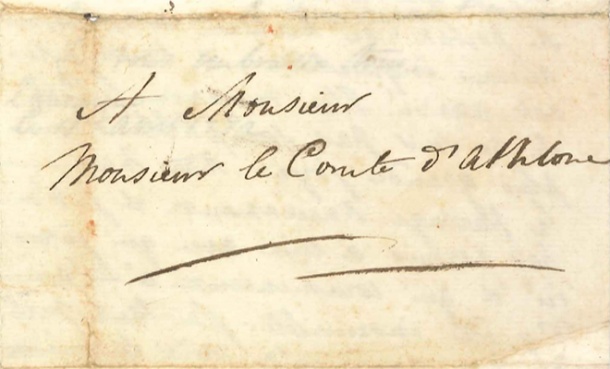 A Monsieur
Monsieur le Comte d'Athlone